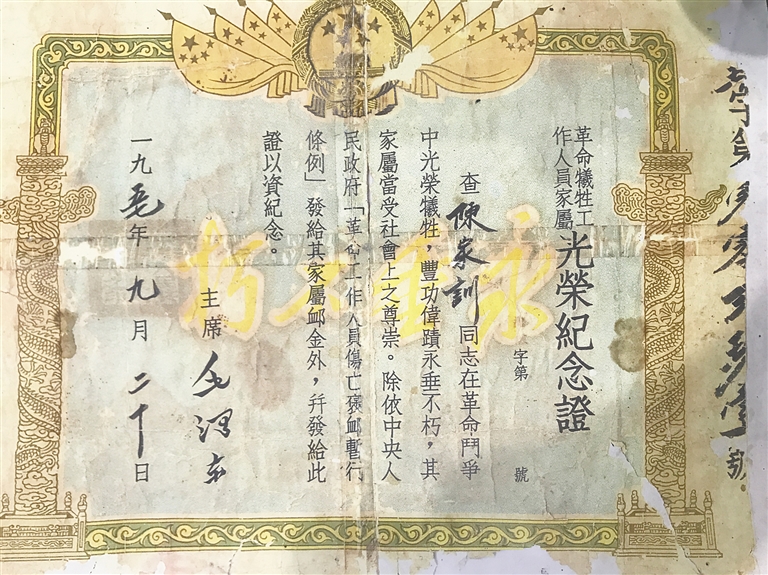 革命犧牲工
作人員家屬光榮紀念證
字第 號
查陳家訓同志在革命鬥爭
中光榮犧牲,豐功偉蹟永垂不朽,其
家屬當受社會上之尊崇。除依中央人
民政府「革命工作人員傷亡褒卹暫行
條例」發給其家屬卹金外,幷發給此
證以資紀念。
主席 毛澤東
一九五 年 九月 二十日
永垂不朽